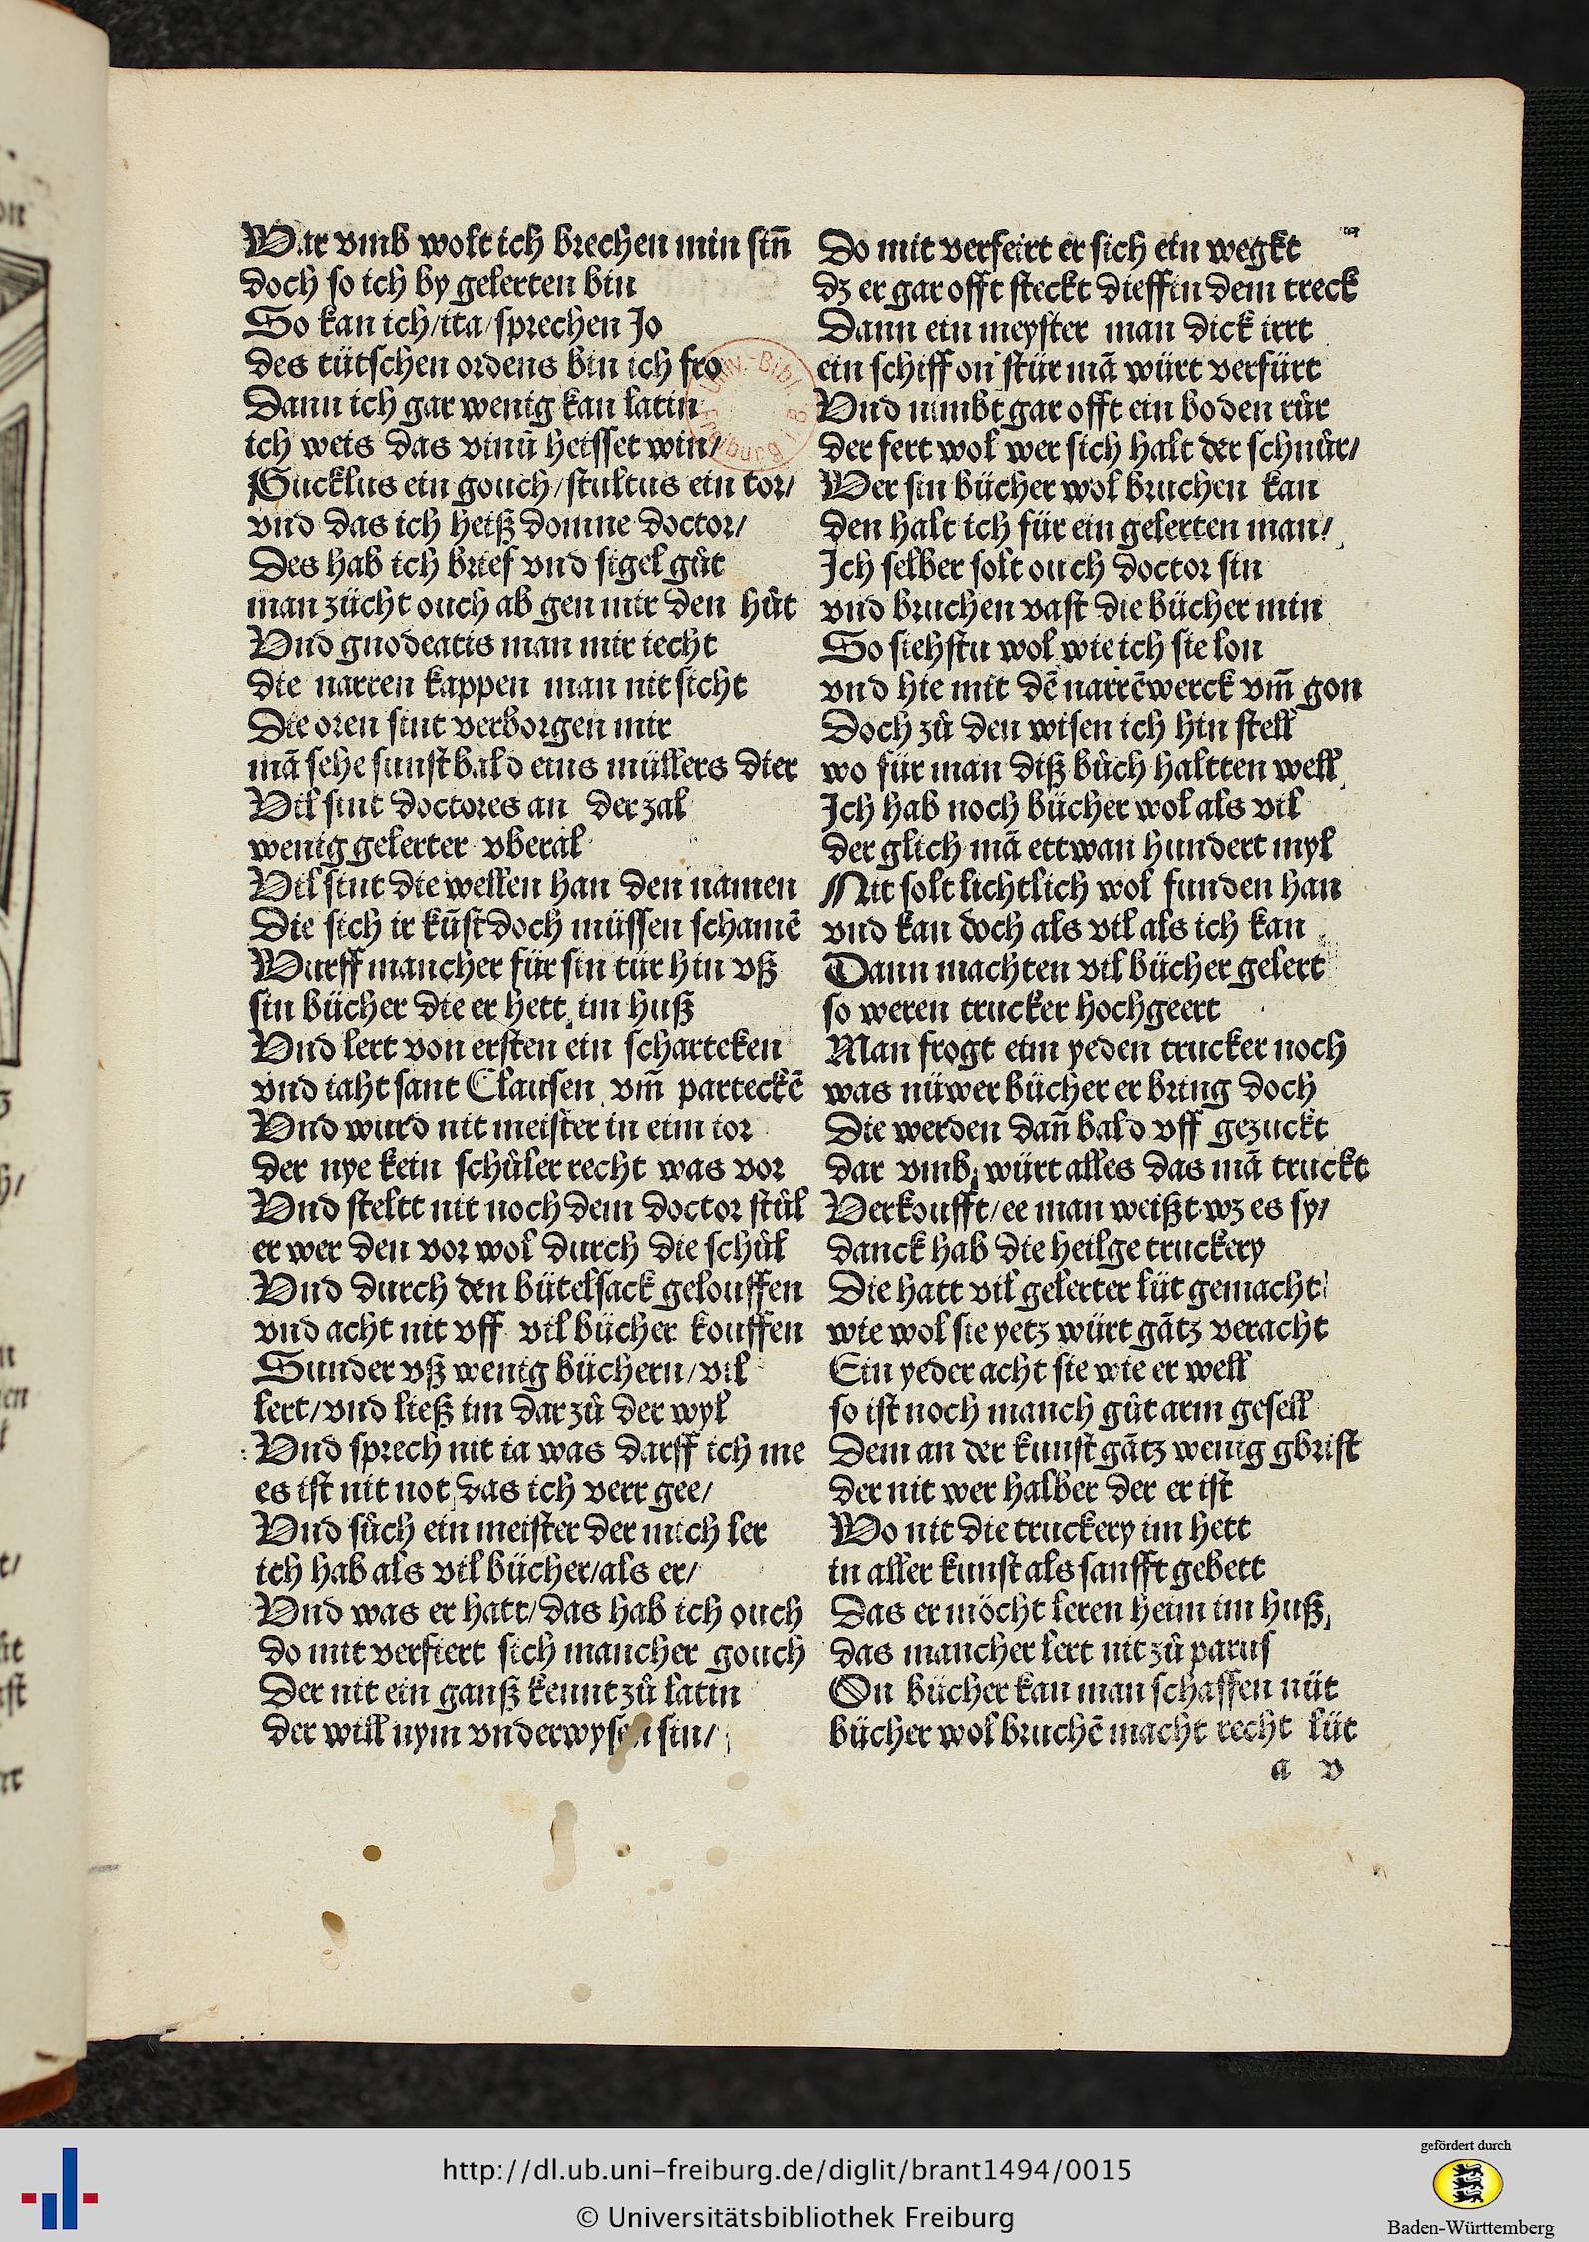 War vmb wolt ich brechen min sin̄
doch so ich by gelerten bin
So kan ich/ita/sprechen Jo
des tütschen ordens bin ich fro
Dann ich gar wenig kan latin
ich weis das vinū heisset win/
Gucklus ein gouch/stultus ein tor/
vnd das ich heiß domne doctor/
Des hab ich brief vnd sigel gůt
man zücht ouch ab gen mir den hůt
Vnd gnodeatis man mir iecht
die narren kappen man nit sicht
Die oren sint verborgen mir
mā sehe sunst bald eins müllers dier
Vil sint doctores an der zal
wenig gelerter vberal
Vil sint die wellen han den namen
Die sich ir kūst doch müssen schamē
Wurff mancher für sin tür hin vß
sin bücher die er hett im huß
Vnd lert von ersten ein scharteken
vnd iaht sant Clausen vm̄ parteckē
Vnd wurd nit meister in eim ior
der nye kein schůler recht was vor
Vnd steltt nit noch dem doctor stůl
er wer den vor wol durch die schůl
Vnd durch den bütelsack gelouffen
vnd acht nit vff vil bücher kouffen
Sunder vß wenig büchern/vil
lert/vnd ließ im dar zů der wyl
Vnd sprech nit ia was darff ich me
es ist nit not das ich verr gee/
Vnd sůch ein meister der mich ler
ich hab als vil bücher/als er/
Vnd was er hatt/das hab ich ouch
do mit verfiert sich mancher gouch
Der nit ein ganß kennt zů latin
der will nym vnderwysen sin/
Do mit verfeirt er sich ein wegkt
dz er gar offt steckt dieff in dem treck
Dann ein meyster man dick irrt
ein schiff on stür mā würt verfürt
Vnd nimbt gar offt ein boden růr
der fert wol wer sich halt der schnůr/
Wer sin bücher wol bruchen kan
den halt ich für ein gelerten man/
Ich selber solt ouch doctor sin
vnd bruchen vast die bücher min
So siehstu wol wie ich sie lon
vnd hie mit dē narrēwerck vm̄ gon
Doch zů den wisen ich hin stell
wo für man diß bůch haltten well
Ich hab noch bücher wol als vil
der glich mā ettwan hundert myl
Nit solt lichtlich wol funden han
vnd kan doch als vil als ich kan
Dann machten vil bücher gelert
so weren trucker hochgeert
Man frogt eim yeden trucker noch
was nüwer bücher er bring doch
Die werden dan̄ bald vff gezuckt
dar vmb würt alles das mā truckt
Verkoufft/ee man weißt wz es sy/
danck hab die heilge truckery
Die hatt vil gelerter lüt gemacht
wie wol sie yetz würt gātz veracht
Ein yeder acht sie wie er well
so ist noch manch gůt arm gesell
Dem an der kunst gātz wenig gbrist
der nit wer halber der er ist
Wo nit die truckery im hett
in aller kunst als sanfft gebett
Das er möcht leren heim im huß,
das mancher lert nit zů parus
On bücher kan man schaffen nüt
bücher wol bruchē macht recht lüt
a v
http://dl.ub.uni-freiburg.de/diglit/brant1494/0015
© Universitätsbibliothek Freiburg
gefördert durch
Baden-Württemberg